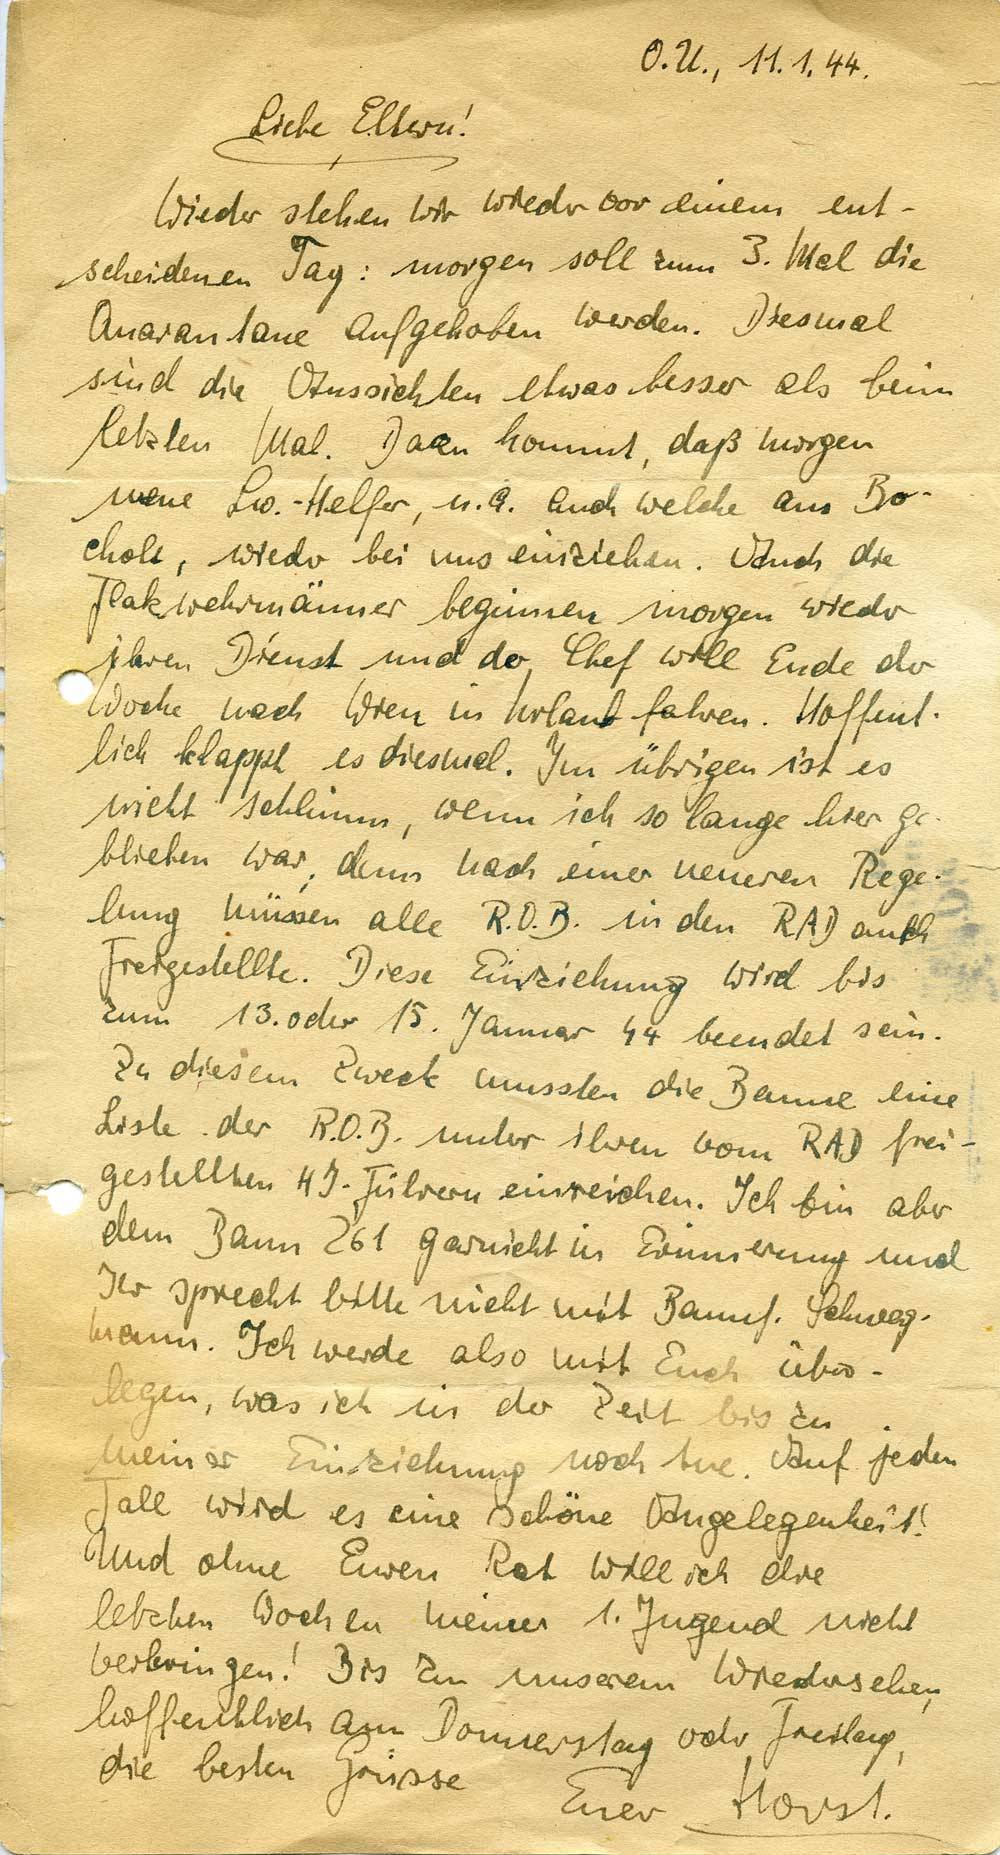 O.U., 11.1.44.
Liebe Eltern!
Wieder stehen wir wieder vor einem ent-
scheidenen Tag: morgen soll zum 3. Mal die
Quarantäne aufgehoben werden. Diesmal
sind die Aussichten etwas besser als beim
letzten Mal. Dazu kommt, daß morgen
neue Lw.-Helfer, u.a. auch welche aus Bo-
cholt, wieder bei uns einziehen. Auch die
Flakwehrmänner beginnen morgen wieder
ihren Dienst und der Chef will Ende der
Woche nach Wien in Urlaub fahren. Hoffent-
lich klappt es diesmal. Im übrigen ist es
nicht schlimm, wenn ich so lange hier ge-
blieben war, denn nach einer neueren Rege-
lung müssen alle R.O.B. in den RAD auch
Freigestellte. Diese Einziehung wird bis
zum 13. oder 15. Januar 44 beendet sein.
Zu diesem Zweck mussten die Banne eine
Liste der R.O.B. unter ihren vom RAD frei-
gestellten HJ-Führern einreichen. Ich bin aber
dem Bann 261 garnicht in Erinnerung und
Ihr sprecht bitte nicht mit Bannf. Schweg-
mann. Ich werde also mit Euch über-
legen, was ich in der Zeit bis zu
meiner Einziehung noch tue. Auf jeden
Fall wird es eine schöne Angelegenheit!
Und ohne Euren Rat will ich die
letzten Wochen meiner 1. Jugend nicht
verbringen! Bis zu unserem Wiedersehen,
hoffentlich am Donnerstag oder Freitag,
die besten Grüsse
Euer Horst.